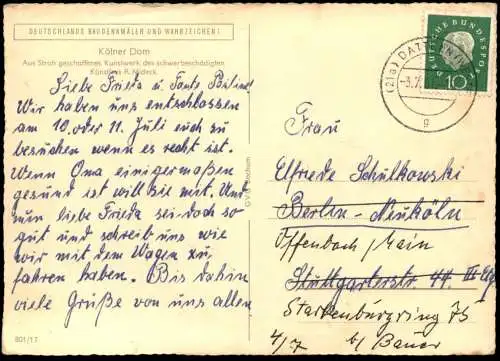 DEUTSCHLANDS BAUDENKMÄLER UND WAHRZEICHEN!
Kölner Dom
Aus Stroh geschaffenes Kunstwerk des schwerbeschädigten
Künstlers R. Nideck
Liebe Frieda u. Tante
Wir haben uns entschlossen
am 10. oder 11. Juli euch zu
besuchen wenn es recht ist.
Wenn Oma einigermaßen
gesund ist will sie mit. Und
nun liebe Frieda sei doch so
gut und schreib uns wie
wir mit dem Wagen zu
fahren haben. Bis dahin
viele Grüße von uns allen
801/17
DEUTSCHE BUNDESPOST
10
(21a) DATTELN
-3.7.
g
Frau
Elfriede Schulkowski
Berlin-Neuköln
Offenbach/Main
Stuttgarterstr. 44 III
Starkenburgring 75
4/7 bei Bauer